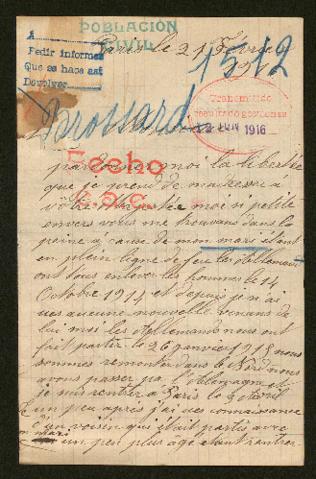 POBLACIÓN
CIVIL
Paris le 21 Février
A
Pedir informes
Que se haga así
Devolver
1512
Transmitido
resultado gestiones
12 JUN 1916
Brossard
pardonnez moi la liberté
Fecho
que je prend de madresser à
votre Majestée moi si petite
envers vous me trouvans dans la
peine a cause de mon mari étant
en plein ligne de feu les Allemands
ont tous enlever les hommes le 14
Octobre 1914 et depuis je n'ai
eus aucune nouvelle venans de
lui moi les Allemands nous ont
fait partir le 26 janvier 1915 nous
sommes remonter dans le Nord nous
avons passer par l'Allemagne et
je suis rentrer à Paris le 2 Avril
un peu après j'ai eus connaissance
d'un voisin qui était partis avec
mon mari
un peu plus âgé étant rentrer